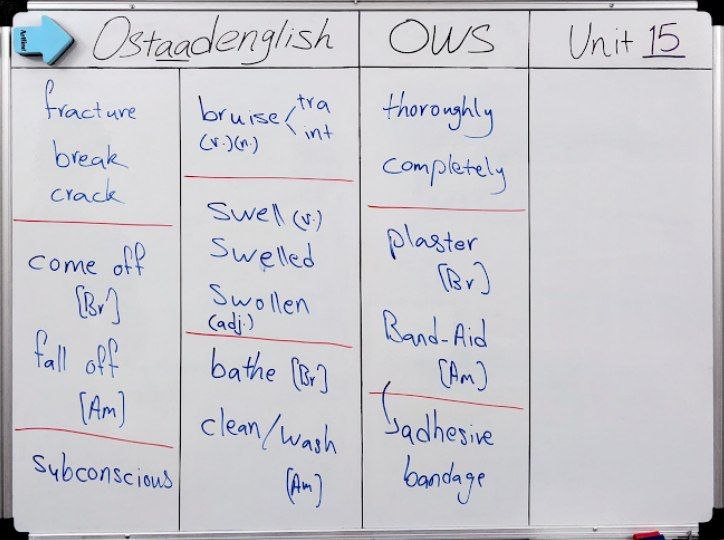 Ostaadenglish
OWS
Unit 15
fracture
break
crack
come off
[Br]
fall off
[Am]
subconscious
bruise
tra
int
(v.)(n.)
swell (v.)
Swelled
Swollen
(adj.)
bathe [Br]
clean/wash
[Am]
thoroughly
completely
plaster
[Br]
Band-Aid
[Am]
adhesive
bandage